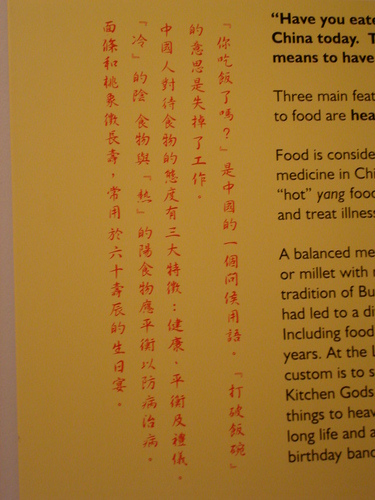 『你吃飯了嗎？』是中國的一個問候用語。『打破飯碗』
的意思是失掉了工作。
中國人對待食物的態度有三大特徵：健康、平衡及禮儀。
『冷』的陰食物與『熱』的陽食物應平衡以防病治病。
面條和桃象徵長壽，常用於六十壽辰的生日宴。
“Have you eate
China today. T
means to have
Three main feat
to food are hea
Food is conside
medicine in Chi
“hot” yang food
and treat illness
A balanced me
or millet with
tradition of Bu
had led to a di
Including food
years. At the
custom is to s
Kitchen Gods
things to heav
long life and a
birthday ban